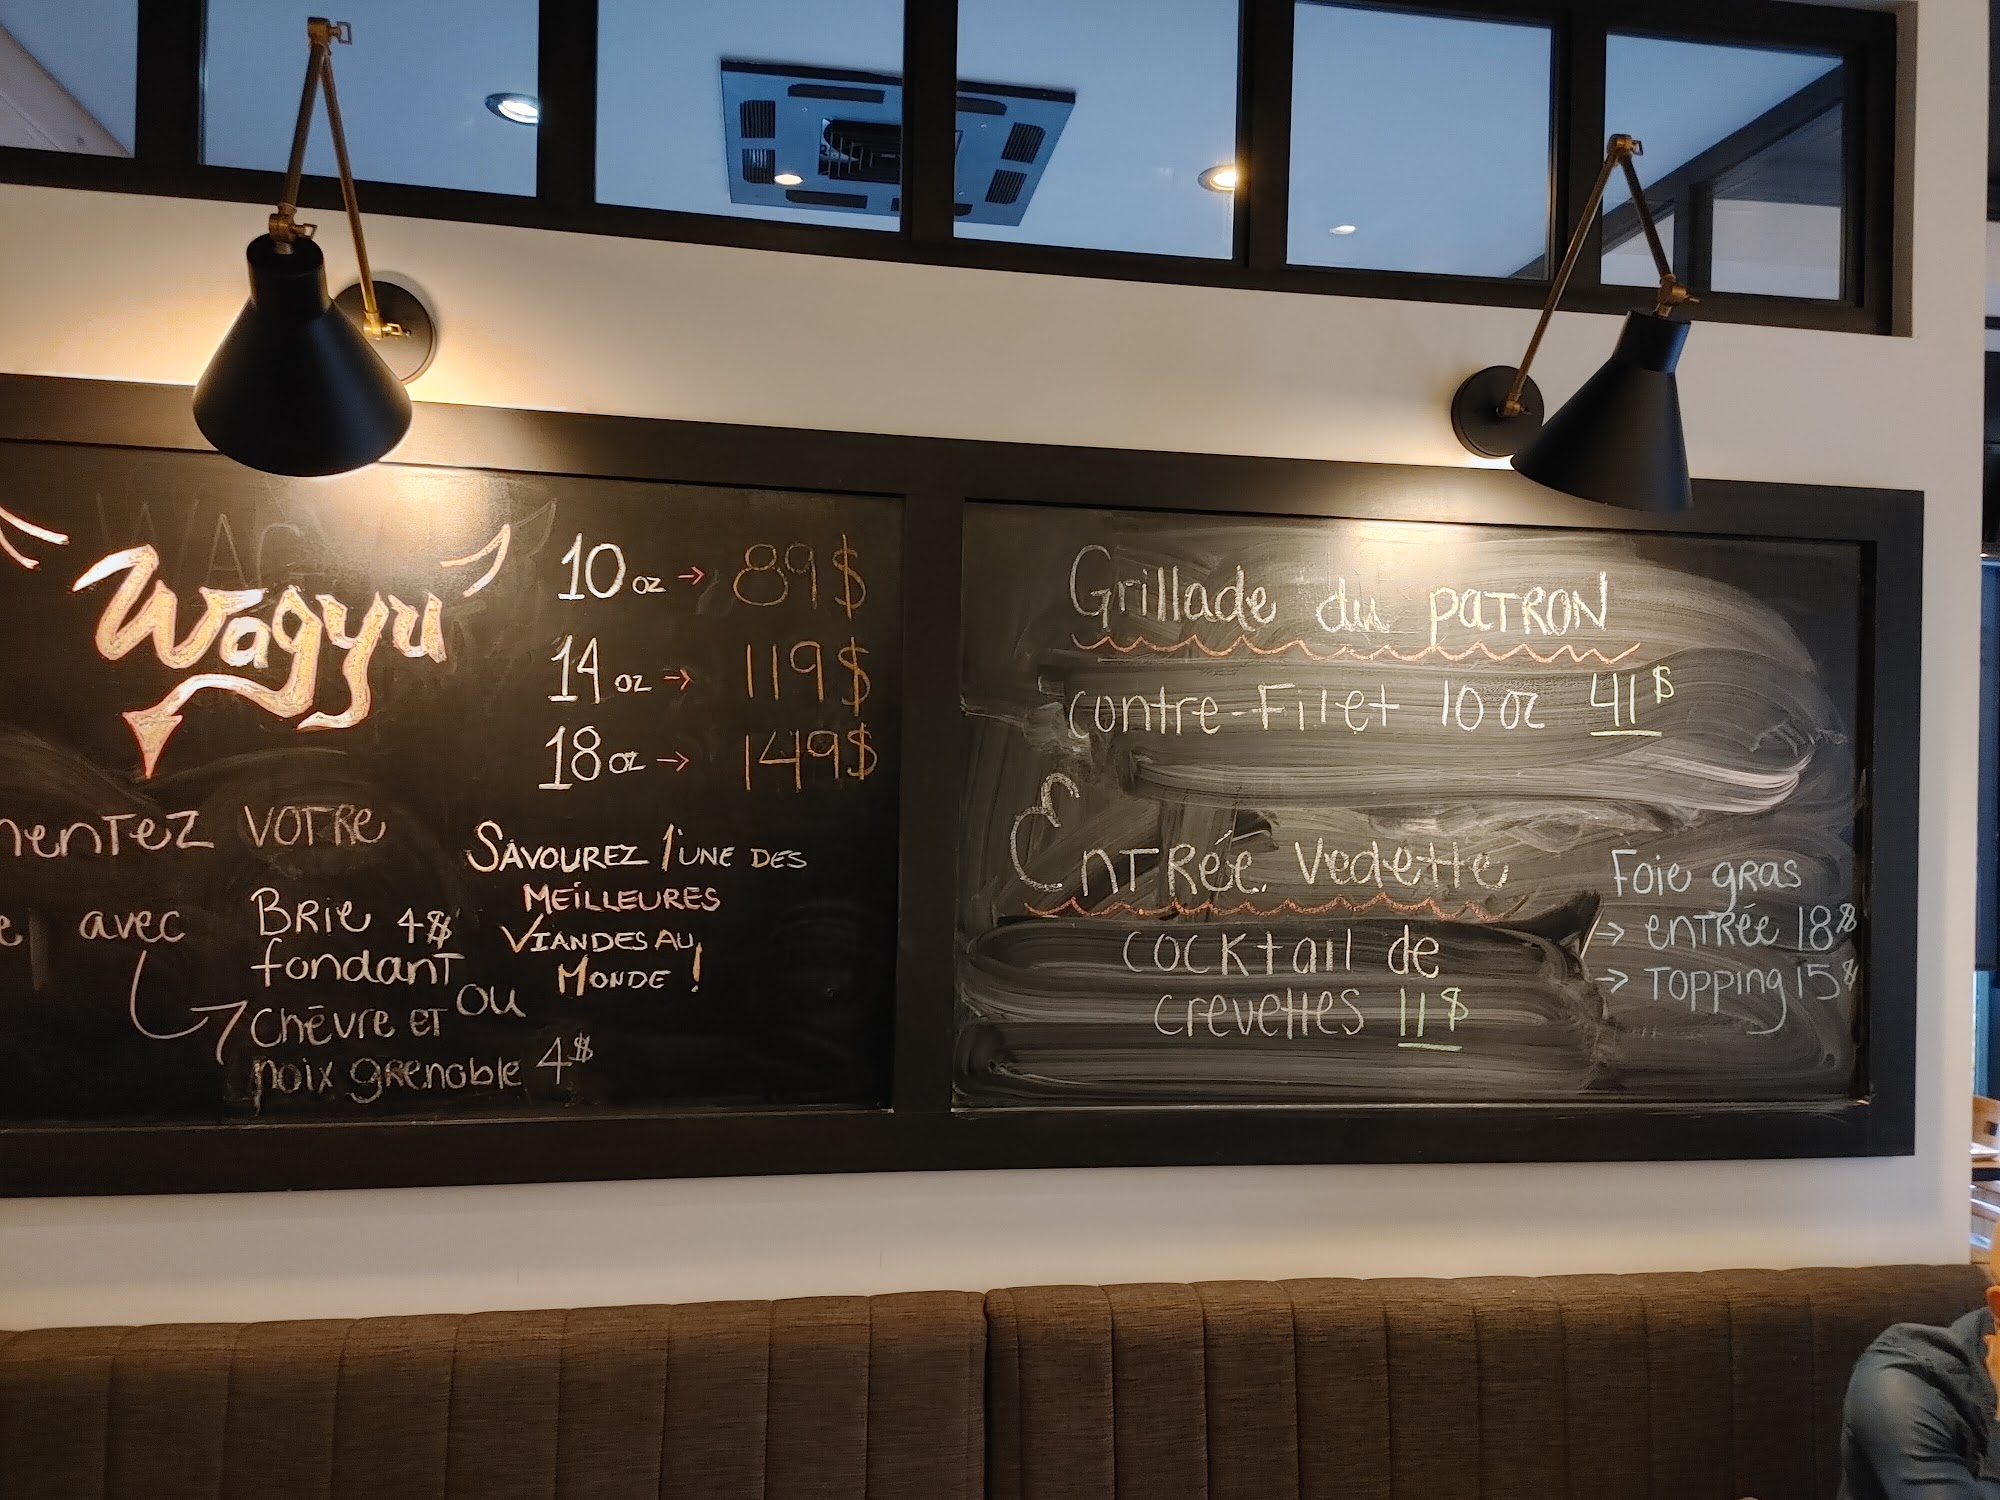 Wagyu
10 oz → 89$
14 oz → 119$
18 oz → 149$
mentez VOTRE
avec
BRie 4$
fondant
OU
Chèvre ET
noix grenoble 4$
SAVOUREZ l'UNE DES
MEILLEURES
VIANDES AU
MONDE!
Grillade du PATRON
contre-Filet 10 oz 41$
EnTRée Vedette
cocktail de
crevettes 11$
Foie gras
→ enTRée 18$
→ Topping 15$